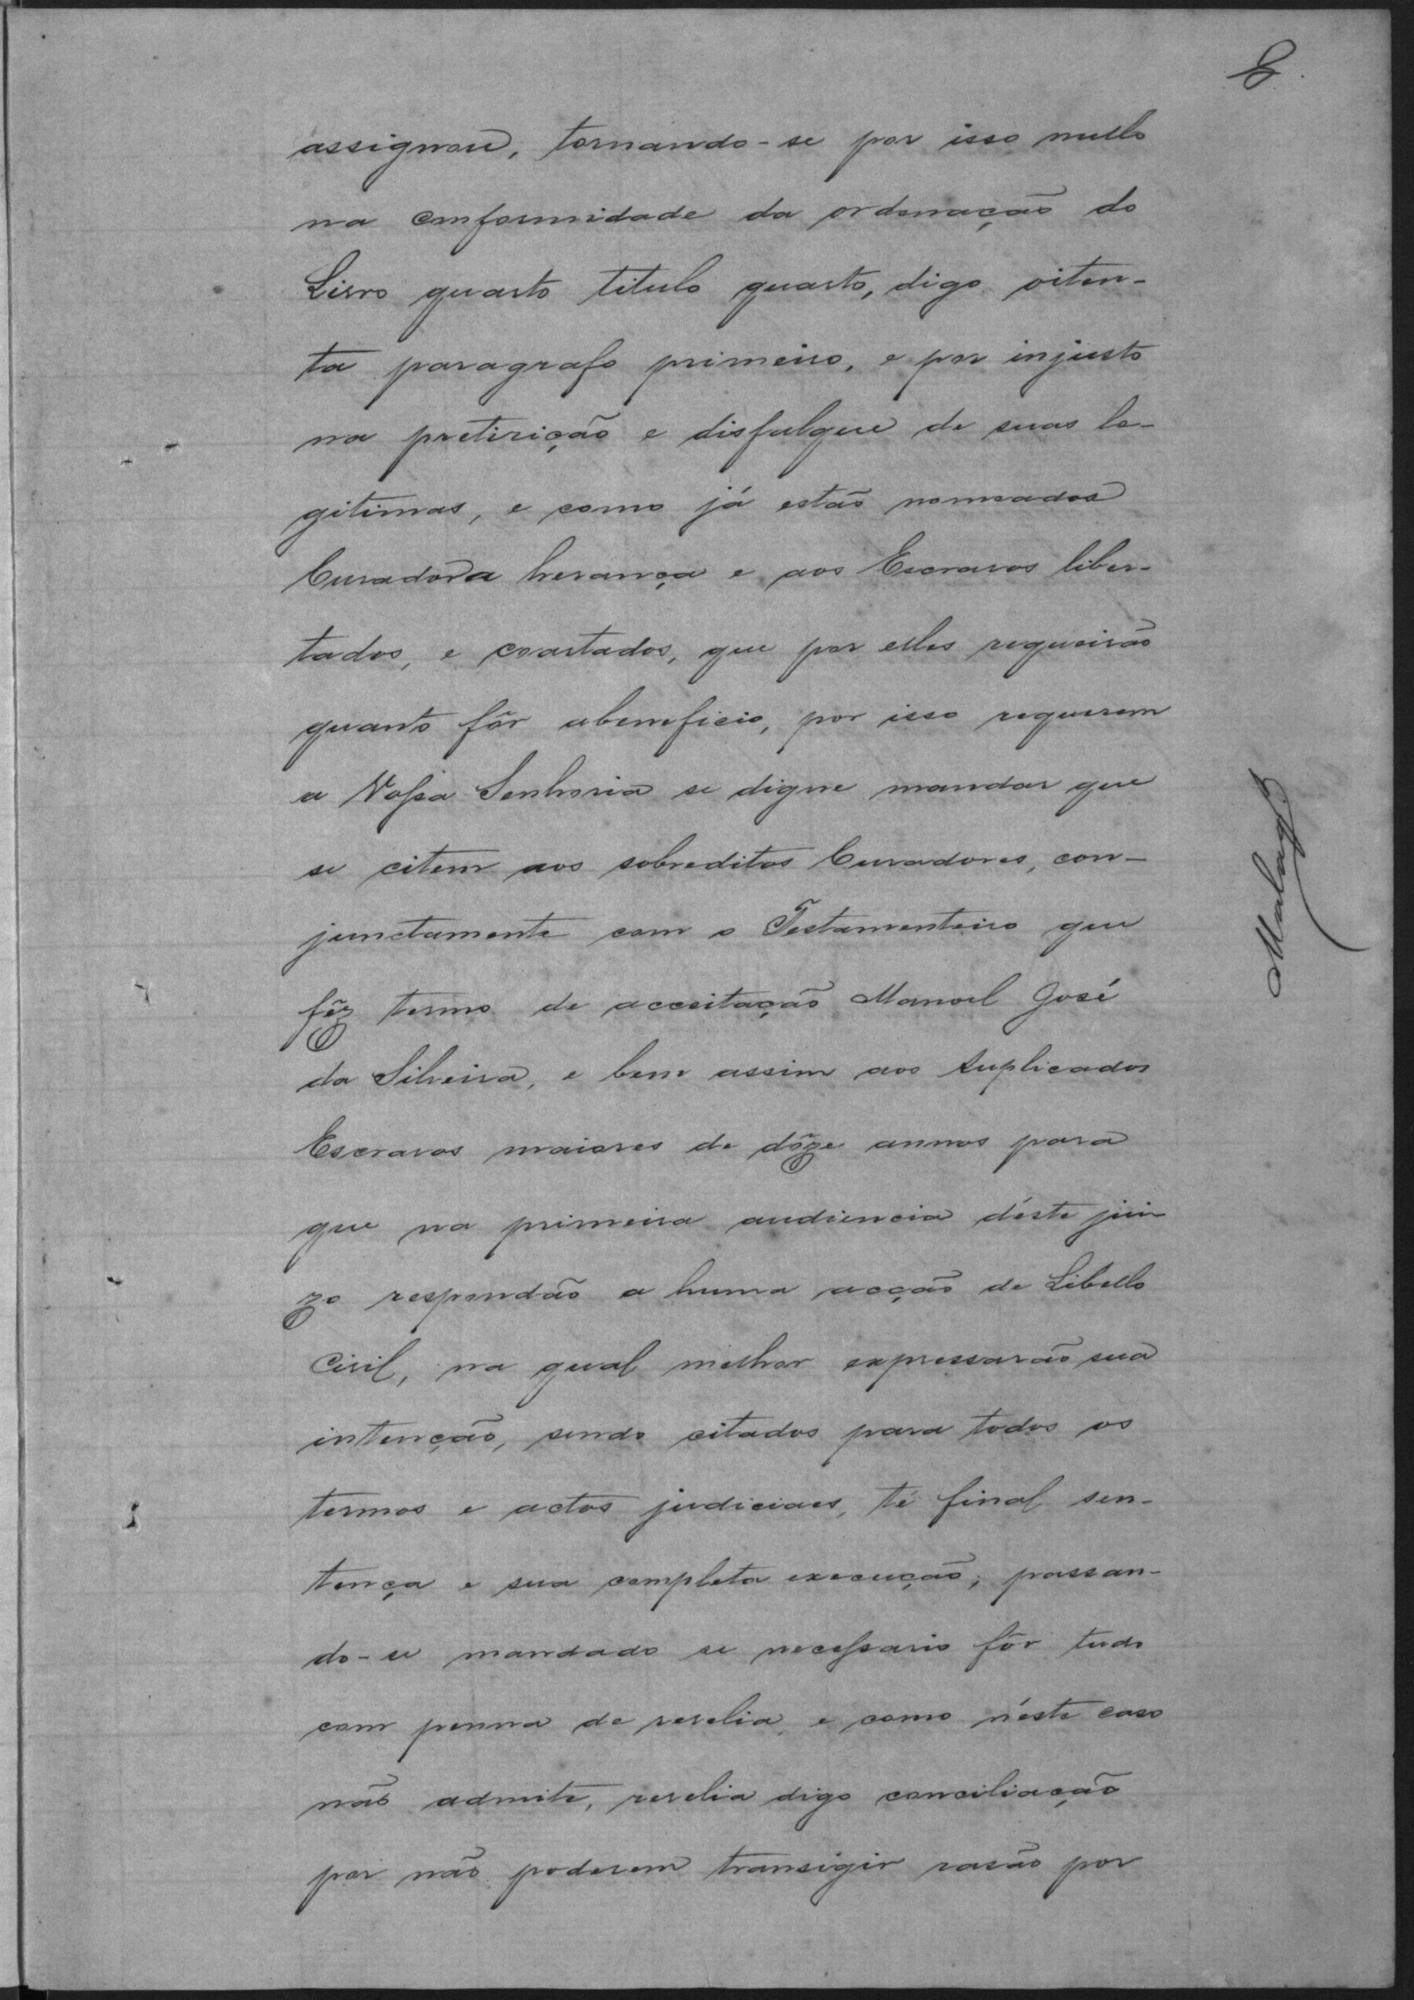 8
assignou, tornando-se por isso nullo
na conformidade da ordenação do
Livro quarto titulo quarto, digo oiten-
ta paragrafo primeiro, e por injusto
na pretirição e disfalque de suas le-
gitimas, e como já estão nomeados
Curador a herança e aos Escravos liber-
tados, e coartados, que por elles requeirão
quanto fôr abeneficio, por isso requerem
a Vossa Senhoria se digne mandar que
se citem aos sobreditos Curadores, con-
junctamente com o Testamenteiro que
fêz termo de acceitação Manoel José
da Silveira, e bem assim aos Suplicados
Escravos maiores de dôze annos para
que na primeira audiencia déste jui-
zo respondão a huma acção de Libello
Civil, na qual melhor expressarão sua
intenção, sendo citados para todos os
termos e actos judiciaes, té final sen-
tença e sua completa execução; passan-
do-se mandado se necessario fôr tudo
com penna de revelia, e como néste caso
não admite, revelia digo conciliação
por não poderem transigir rasão por